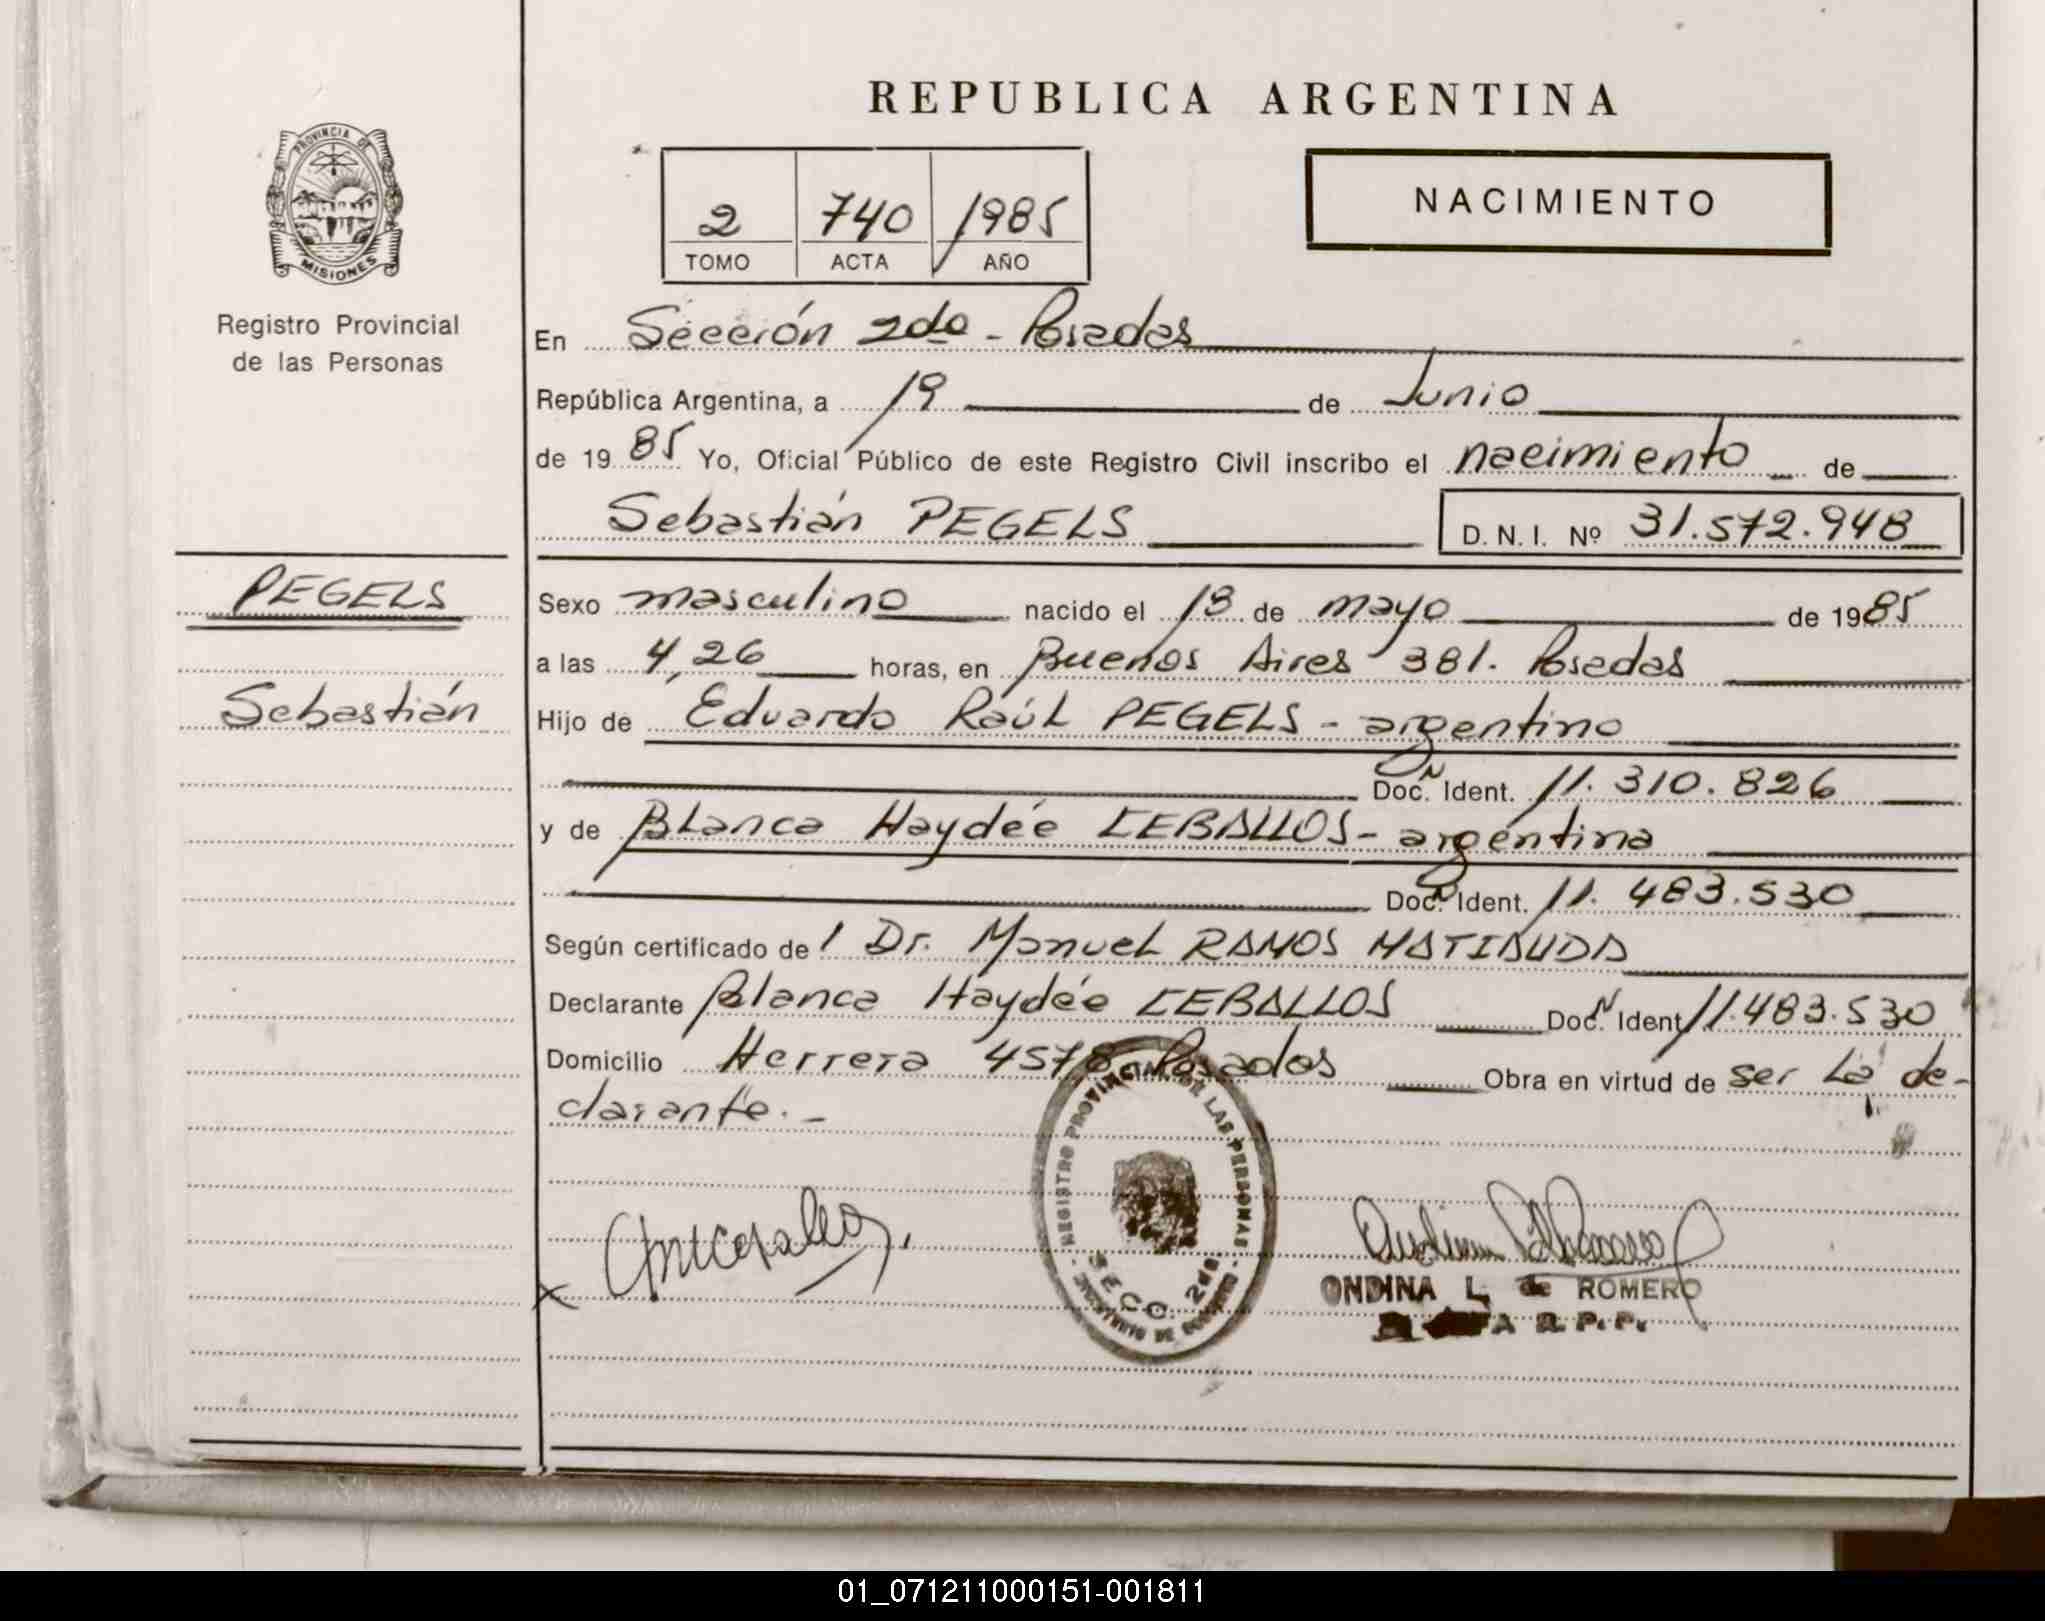 REPUBLICA ARGENTINA
PROVINCIA DE
MISIONES
Registro Provincial
de las Personas
2 740 1985
TOMO ACTA AÑO
NACIMIENTO
En Sección 2da - Posadas
República Argentina, a 19 de Junio
de 1985 Yo, Oficial Público de este Registro Civil inscribo el nacimiento de
Sebastián PEGELS D. N. I. Nº 31.572.948
PEGELS
Sebastián
Sexo masculino nacido el 13 de mayo de 1985
a las 4,26 horas, en Buenos Aires 381. Posadas
Hijo de Eduardo Raúl PEGELS - argentino
Doc. N Ident. 11.310.826
y de Blanca Haydée CEBALLOS - argentina
Doc. N Ident. 11.483.530
Según certificado de l Dr. Manuel RAMOS MATIAUDA
Declarante Blanca Haydée CEBALLOS Doc. N Ident 11.483.530
Domicilio Herrera 4578 Posadas Obra en virtud de ser la de-
clarante. -
REGISTRO PROVINCIAL DE LAS PERSONAS
SECC. 2da.
MINISTERIO DE GOBIERNO
ONDINA L. de ROMERO
R. P. P.
01_071211000151-001811